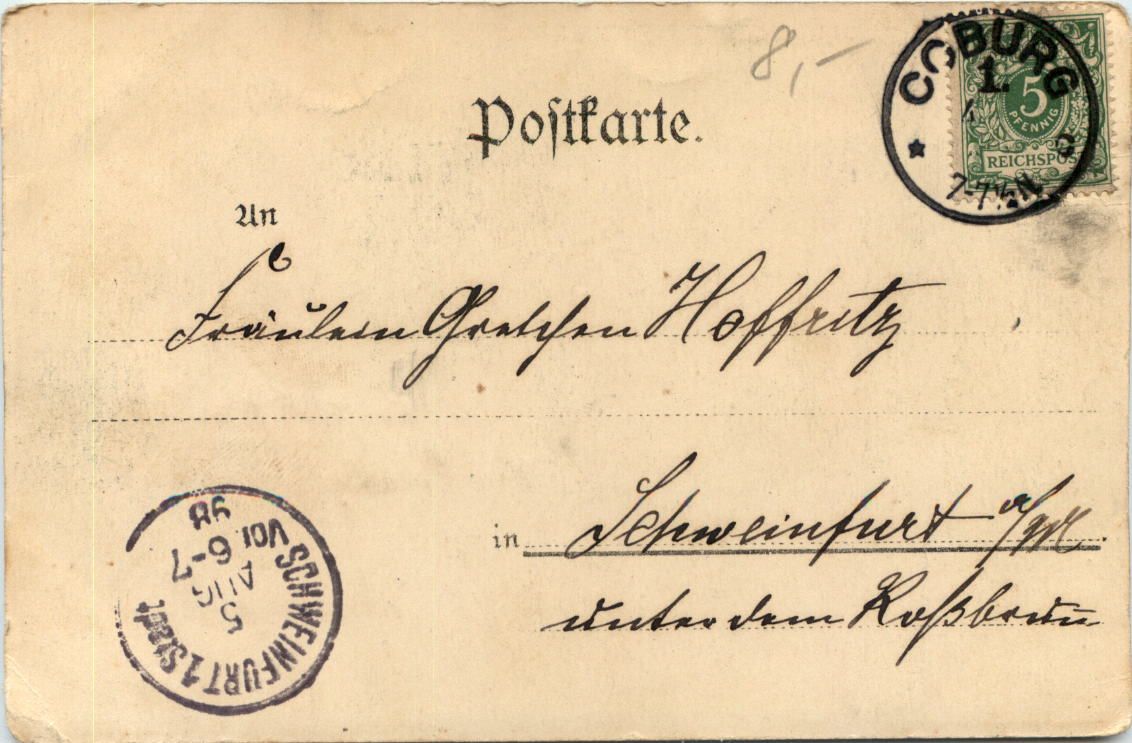 8,-
COBURG
1.
7-7½N.
5
PFENNIG
REICHSPOST
Postkarte.
An
Fräulein Gretchen Hoffritz
in Schweinfurt a/M
unter dem Roßbrun̄
SCHWEINFURT 1 Stadt
5
AUG
6-7
VOR
98